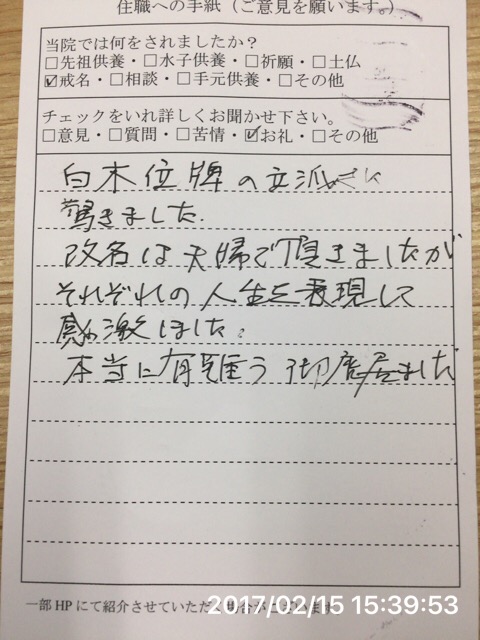 住職への手紙(ご意見を願います。)
当院では何をされましたか?
□先祖供養・□水子供養・□祈願・□土仏
☑戒名・□相談・□手元供養・□その他
チェックをいれ詳しくお聞かせ下さい。
□意見・□質問・□苦情・☑お礼・□その他
白木位牌の立派さに
驚きました.
改名は夫婦で頂きましたが
それぞれの人生を表現して
感激しました。
本当に有難う御座居ました
一部HPにて紹介させていただく場合がございます
2017/02/15 15:39:53